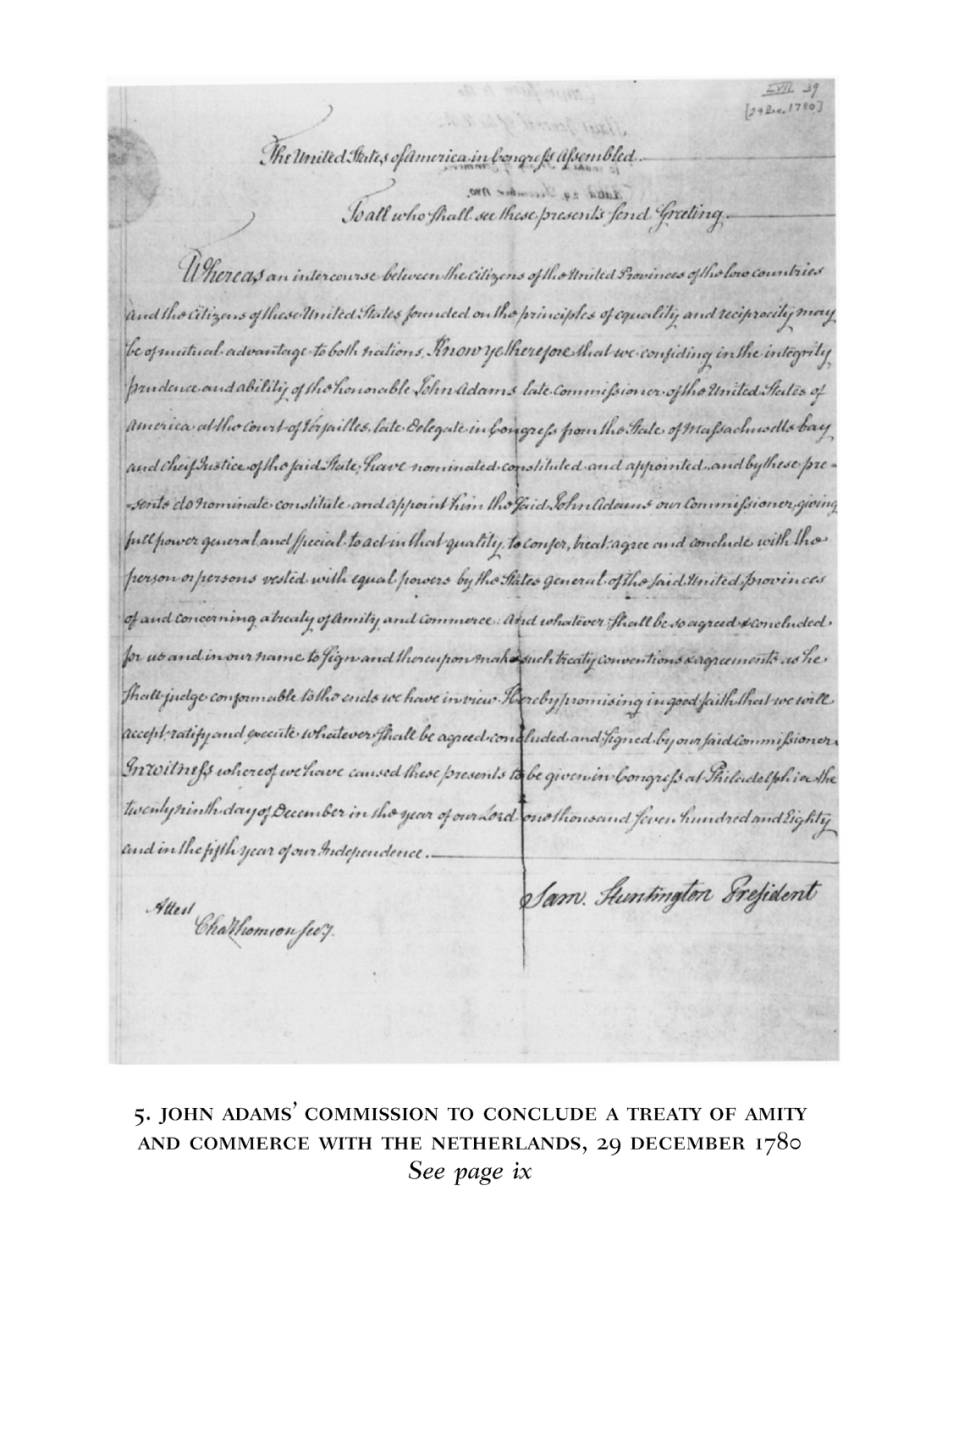 LVII 39
[29 Dec. 1780]
The United States of America in Congress Assembled
To all who shall see these presents send Greeting.
Whereas an intercourse between the citizens of the United Provinces of the low countries
and the citizens of these United States founded on the principles of equality and reciprocity may
be of mutual advantage to both nations, Know ye therefore that we confiding in the integrity
prudence and ability of the honorable John Adams late commissioner of the United States of
America at the court of Versailles, late Delegate in Congress from the State of Massachusetts bay
and cheif Justice of the said State, have nominated constituted and appointed and by these pre=
=sents do nominate constitute and appoint him the said John Adams our Commissioner, giving
full power general and special to act in that quality, to confer, treat, agree and conclude with the
person or persons vested with equal powers by the States general of the said United Provinces
of and concerning a treaty of Amity and Commerce: And whatever shall be so agreed & concluded
for us and in our name to sign and thereupon make such treaty conventions & agreements as he
shall judge conformable to the ends we have in view Hereby promising in good faith that we will
accept ratify and execute whatever shall be agreed concluded and signed by our said Commissioner.
In witness whereof we have caused these presents to be given in Congress at Philadelphia the
twenty ninth day of December in the year of our Lord one thousand seven hundred and Eighty
and in the fifth year of our Independence.
Sam. Huntington President
Attest
Cha Thomson secy.
5. JOHN ADAMS' COMMISSION TO CONCLUDE A TREATY OF AMITY
AND COMMERCE WITH THE NETHERLANDS, 29 DECEMBER 1780
See page ix